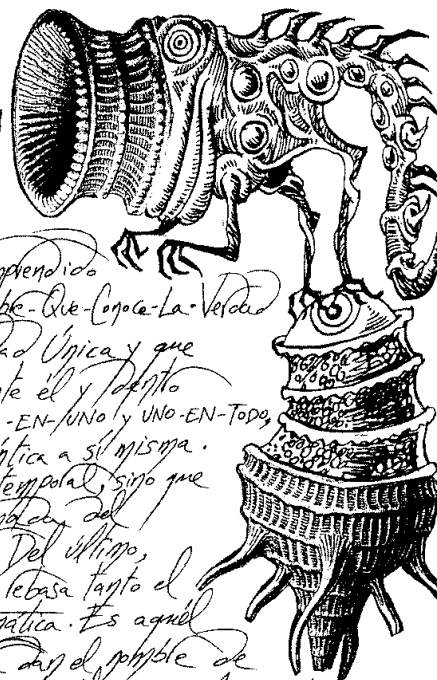 mprendido
bre-Que-Conoce-La-Verdad
ad Única y que
nte él y dento
-EN-UNO y UNO-EN-TODO,
ntica a sí misma.
Temporal, sino que
nada del
Del último,
rebasa tanto el
mática. Es aquél
dan el nombre de